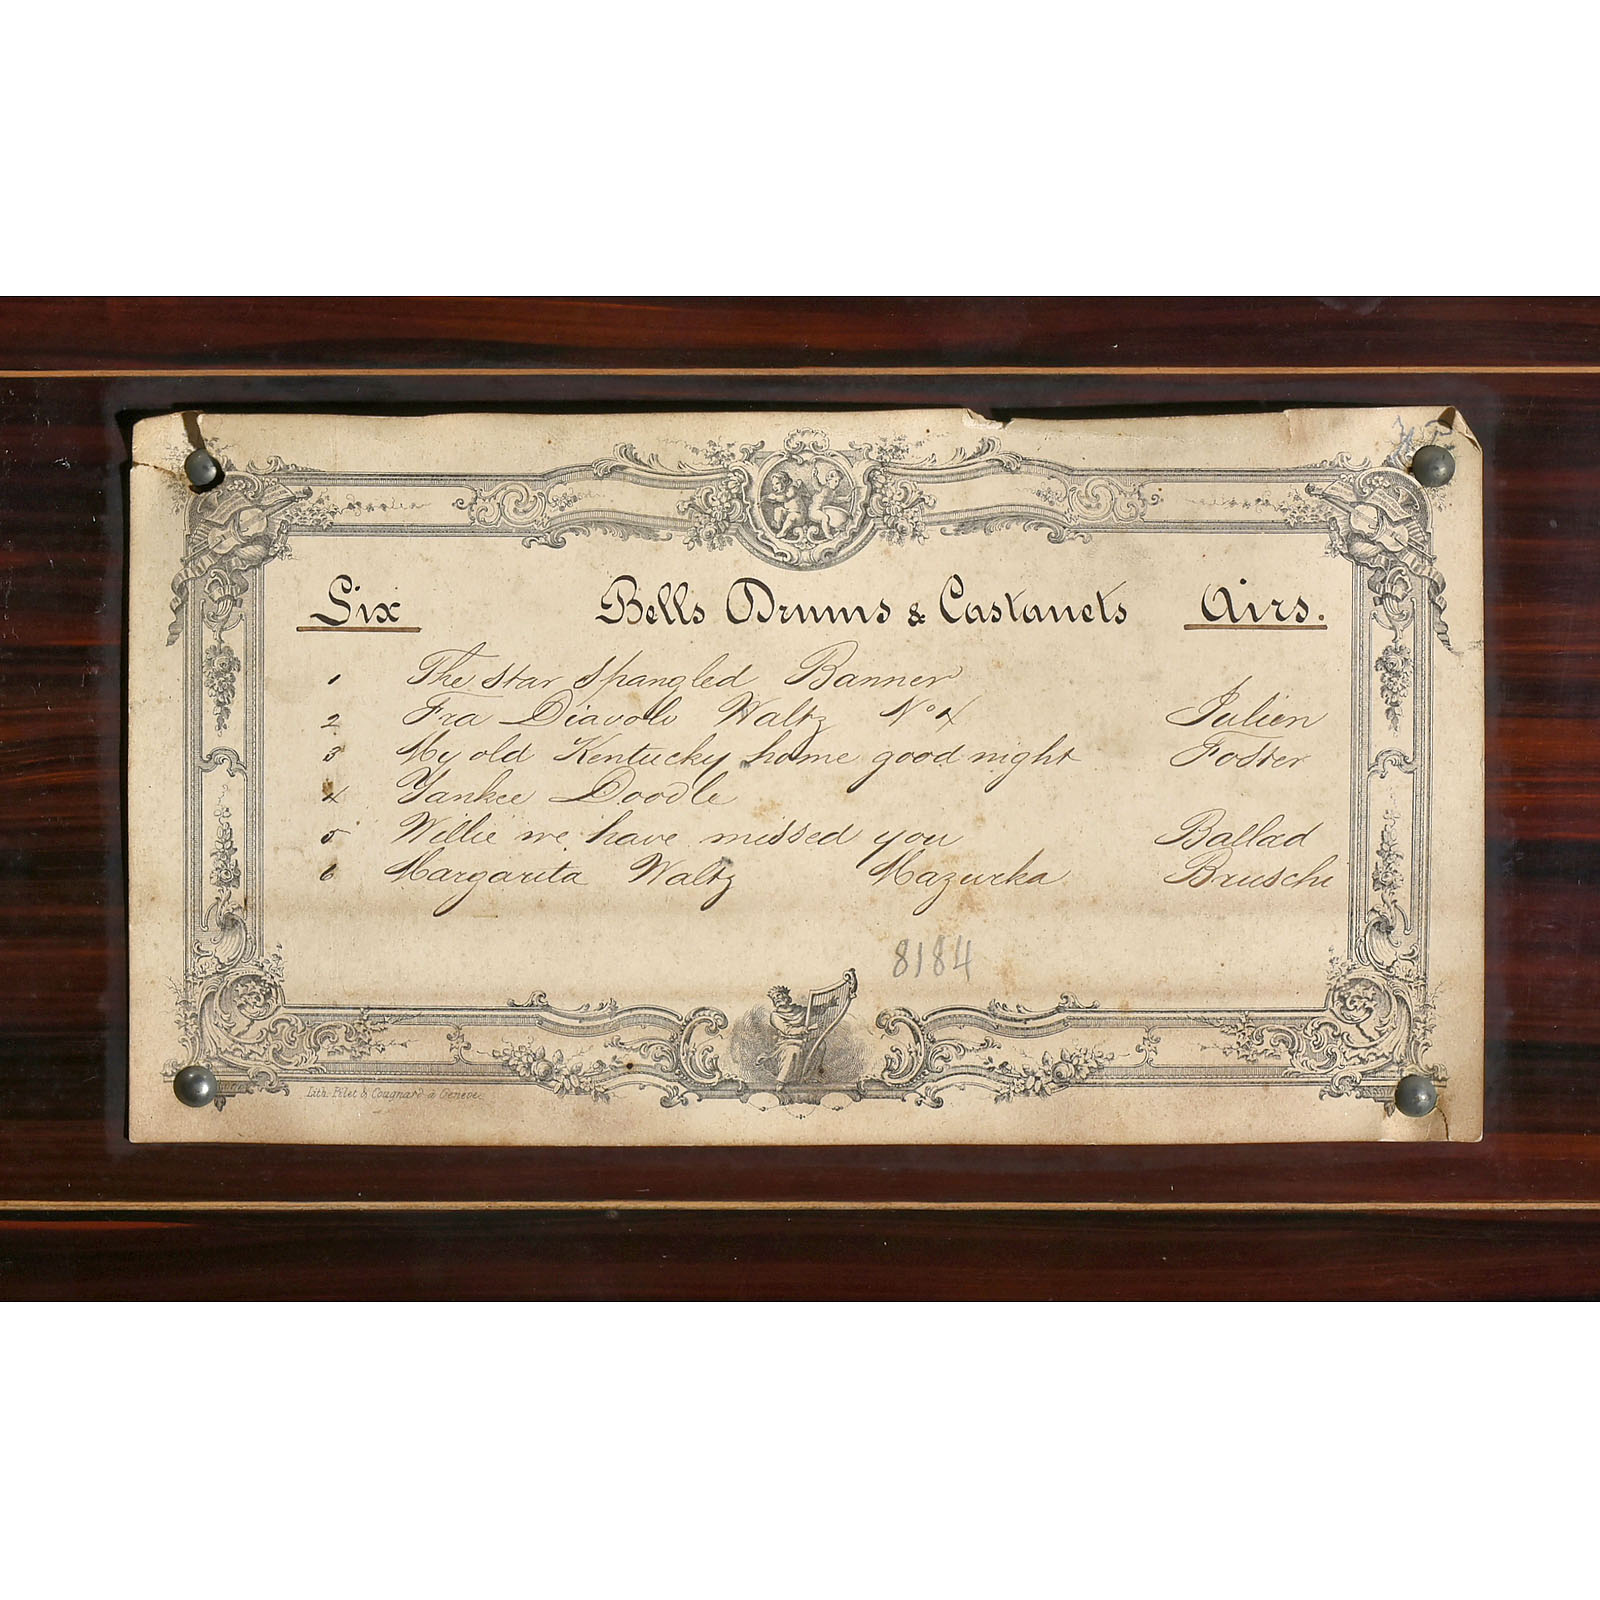 Six Bells Drums & Castanets Airs.
1 The Star Spangled Banner
2 Fra Diavolo Waltz No 4 Julien
3 My old Kentucky home good night Foster
4 Yankee Doodle
5 Willie we have missed you Ballad
6 Margarita Waltz Mazurka Bruschi
8184
Lith. Pilet & Cougnard à Genève